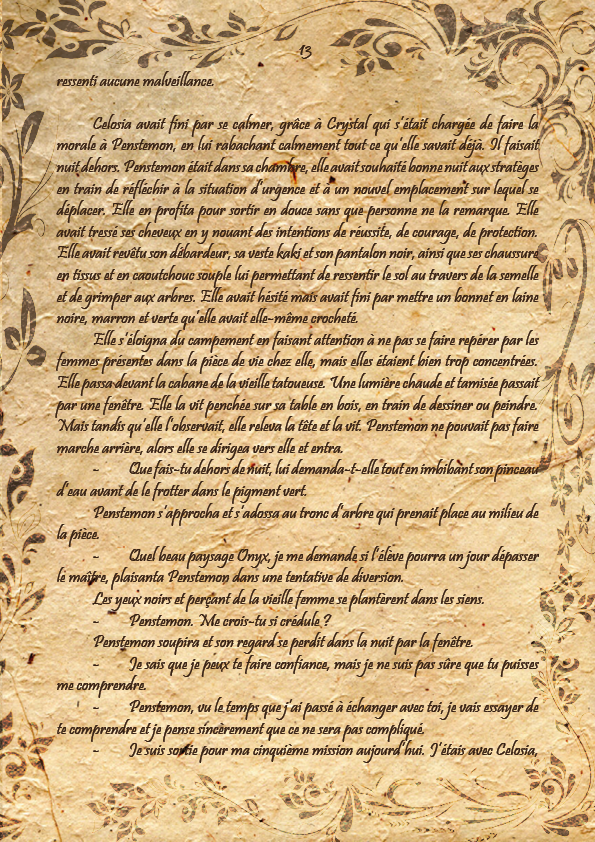 13
ressenti aucune malveillance.
Celosia avait fini par se calmer, grâce à Crystal qui s'était chargée de faire la
morale à Penstemon, en lui rabachant calmement tout ce qu'elle savait déjà. Il faisait
nuit dehors. Penstemon était dans sa chambre, elle avait souhaité bonne nuit aux stratèges
en train de réfléchir à la situation d'urgence et à un nouvel emplacement sur lequel se
déplacer. Elle en profita pour sortir en douce sans que personne ne la remarque. Elle
avait tressé ses cheveux en y nouant des intentions de réussite, de courage, de protection.
Elle avait revêtu son débardeur, sa veste kaki et son pantalon noir, ainsi que ses chaussure
en tissus et en caoutchouc souple lui permettant de ressentir le sol au travers de la semelle
et de grimper aux arbres. Elle avait hésité mais avait fini par mettre un bonnet en laine
noire, marron et verte qu'elle avait elle-même crocheté.
Elle s'éloigna du campement en faisant attention à ne pas se faire repérer par les
femmes présentes dans la pièce de vie chez elle, mais elles étaient bien trop concentrées.
Elle passa devant la cabane de la vieille tatoueuse. Une lumière chaude et tamisée passait
par une fenêtre. Elle la vit penchée sur sa table en bois, en train de dessiner ou peindre.
Mais tandis qu'elle l'observait, elle releva la tête et la vit. Penstemon ne pouvait pas faire
marche arrière, alors elle se dirigea vers elle et entra.
- Que fais-tu dehors de nuit, lui demanda-t-elle tout en imbibant son pinceau
d'eau avant de le frotter dans le pigment vert.
Penstemon s'approcha et s'adossa au tronc d'arbre qui prenait place au milieu de
la pièce.
- Quel beau paysage Onyx, je me demande si l'élève pourra un jour dépasser
le maître, plaisanta Penstemon dans une tentative de diversion.
Les yeux noirs et perçant de la vieille femme se plantèrent dans les siens.
- Penstemon. Me crois-tu si crédule ?
Penstemon soupira et son regard se perdit dans la nuit par la fenêtre.
- Je sais que je peux te faire confiance, mais je ne suis pas sûre que tu puisses
me comprendre.
- Penstemon, vu le temps que j'ai passé à échanger avec toi, je vais essayer de
te comprendre et je pense sincèrement que ce ne sera pas compliqué.
- Je suis sortie pour ma cinquième mission aujourd'hui. J'étais avec Celosia,